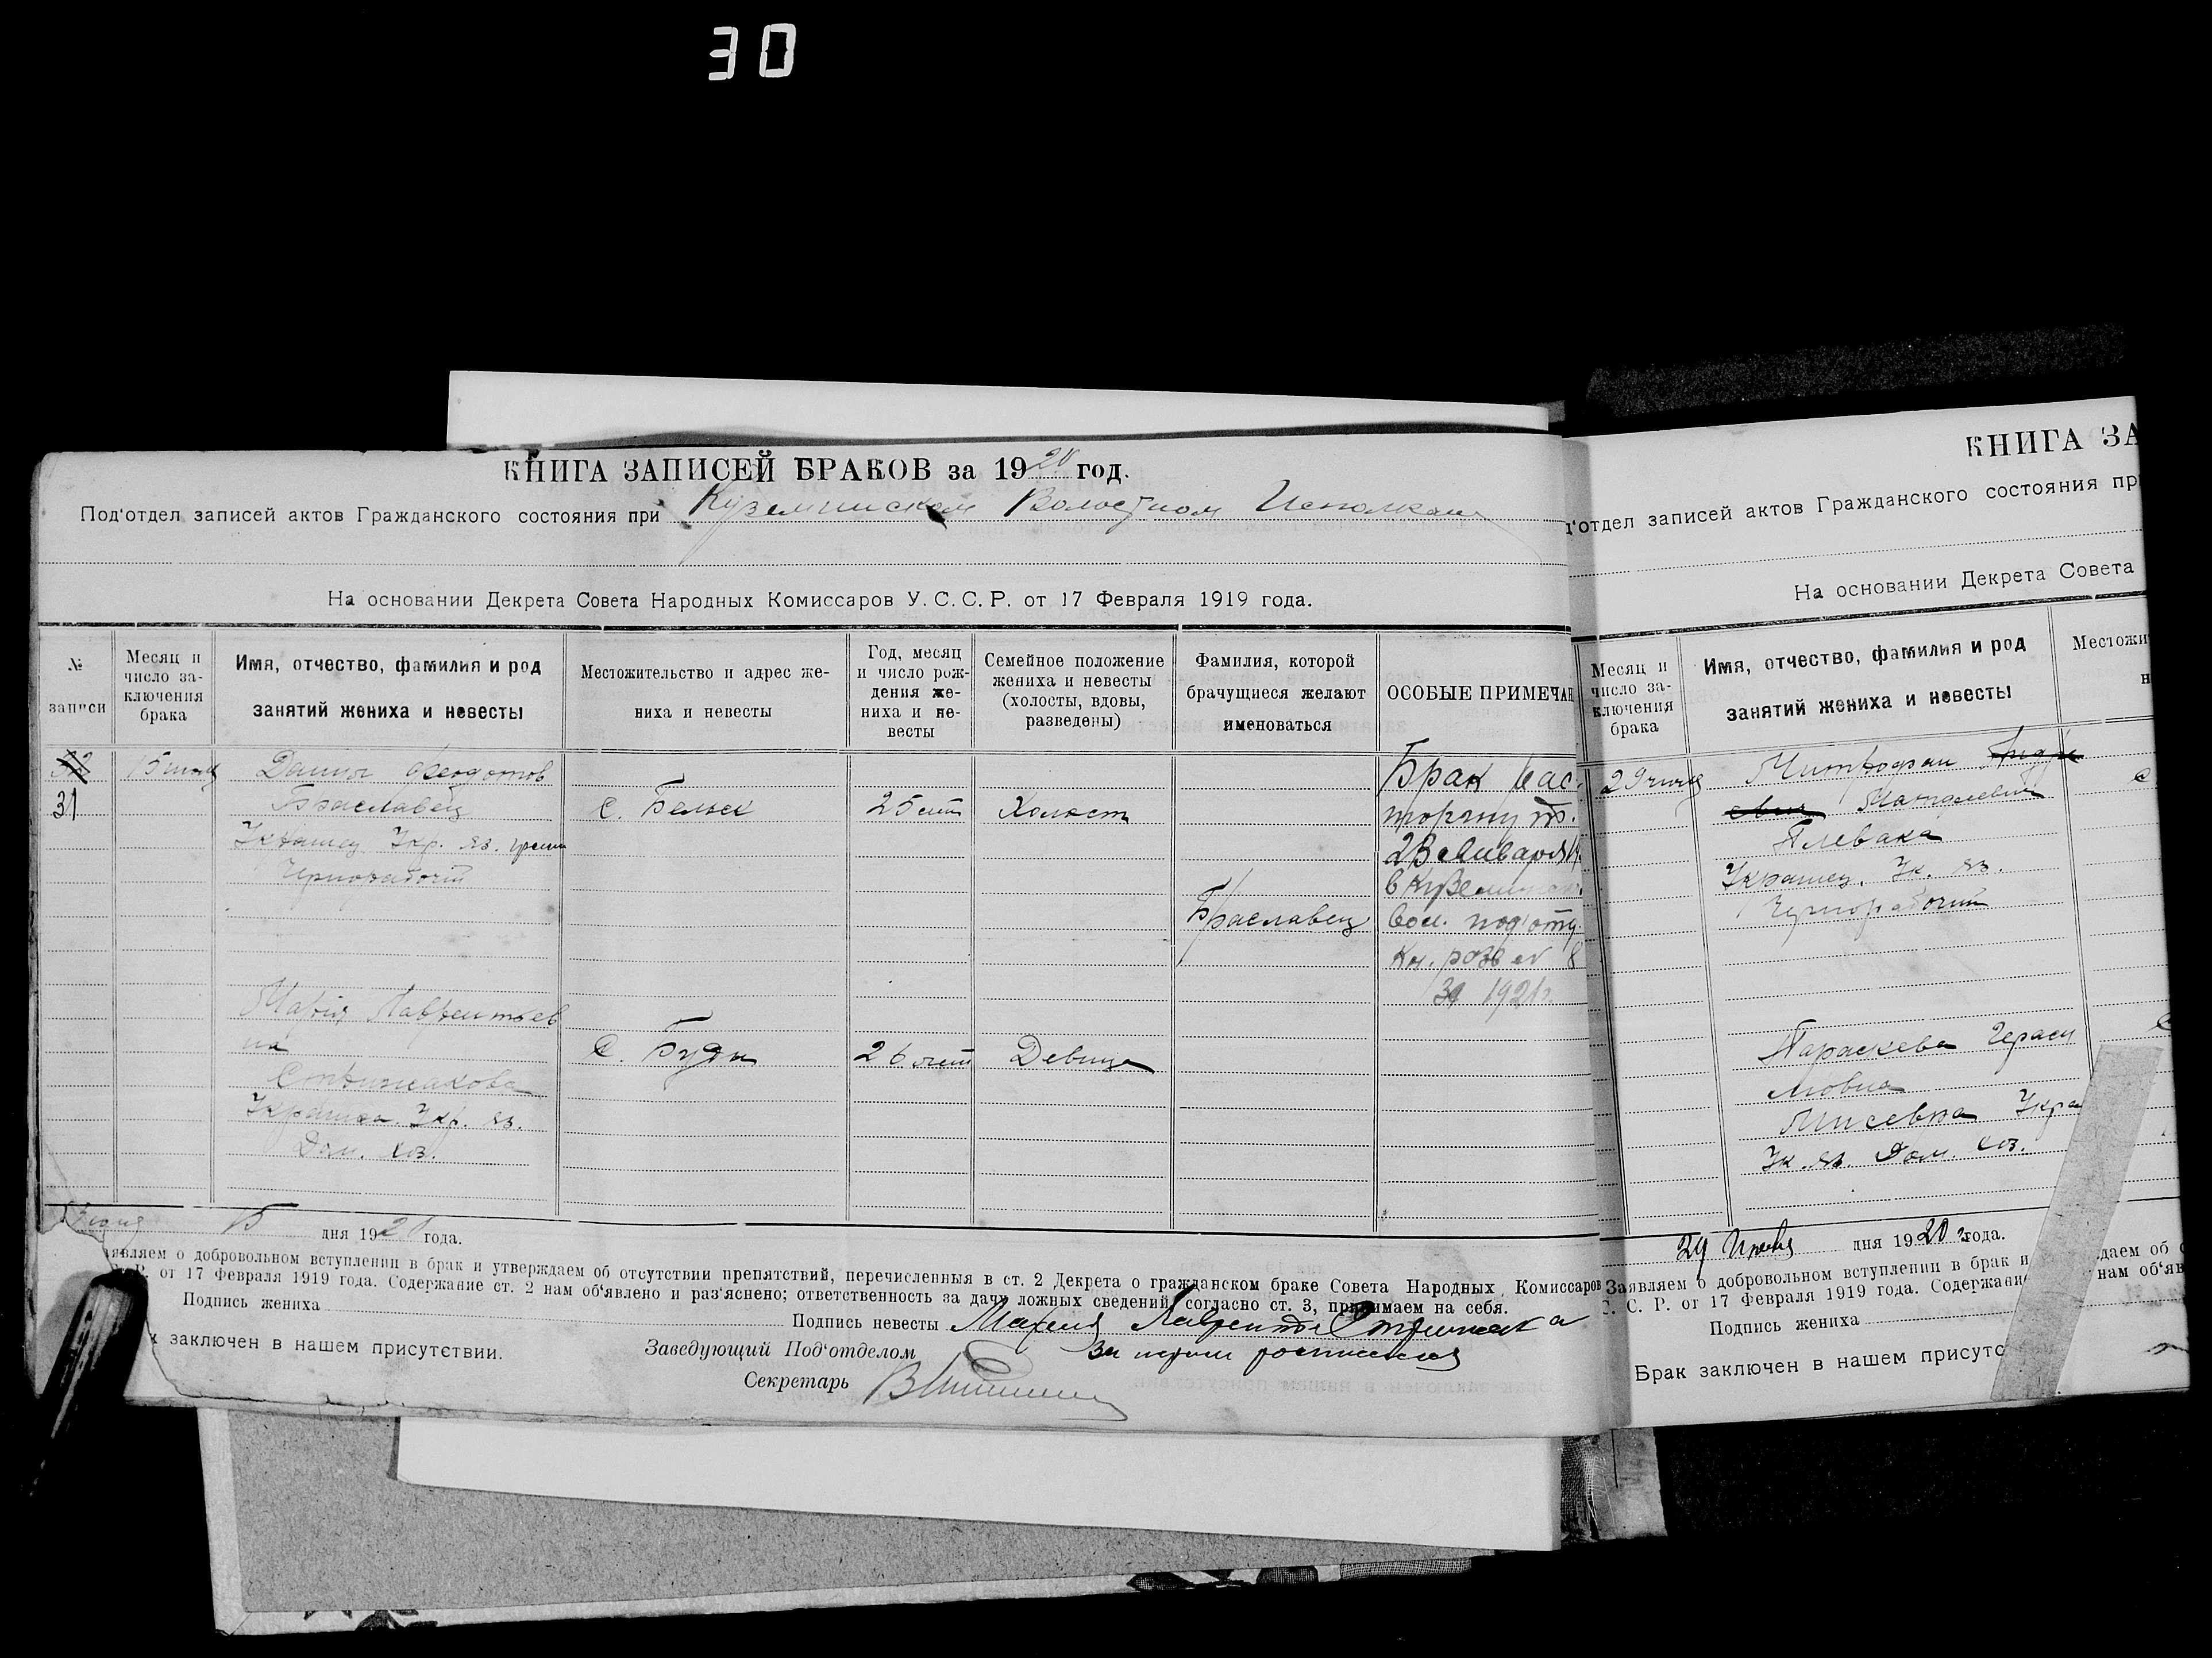 30
КНИГА ЗАПИСЕЙ БРАКОВ за 1920 год.
Под'отдел записей актов Гражданского состояния при Куземинском Волостном Исполкоме
На основании Декрета Совета Народных Комиссаров У. С. С. Р. от 17 Февраля 1919 года.
№ записи
Месяц и число заключения брака
Имя, отчество, фамилия и род занятий жениха и невесты
Местожительство и адрес жениха и невесты
Год, месяц и число рождения жениха и невесты
Семейное положение жениха и невесты (холосты, вдовы, разведены)
Фамилия, которой брачущиеся желают именоваться
ОСОБЫЕ ПРИМЕЧАН
32
31
15
Федотов
Браславец
Укр. яз.
Чернорабочий
С. Бельск
25 лет
Холост
Браславец
Брак рас-
торгнут.
23 Января
в Куземинск.
вол. под'отд.
Кн. разв №
1921 г.
Мария Лаврентьев
на
Стрижакова
Украинка. Укр. яз.
Дом. хоз.
С. Буды
26 лет
Девица
15 дня 1920 года.
аявляем о добровольном вступлении в брак и утверждаем об отсутствии препятствий, перечисленныя в ст. 2 Декрета о гражданском браке Совета Народных Комиссаров
Р. от 17 Февраля 1919 года. Содержание ст. 2 нам об'явлено и раз'яснено; ответственность за дачу ложных сведений, согласно ст. 3, принимаем на себя.
Подпись жениха
Подпись невесты Мария
к заключен в нашем присутствии.
Заведующий Под'отделом
Секретарь
КНИГА ЗА
д'отдел записей актов Гражданского состояния при
На основании Декрета Совета
Месяц и число заключения брака
Имя, отчество, фамилия и род занятий жениха и невесты
Местожи
н
29
Митрофан
Плевака
Украинец. Ук. яз.
Чернорабочий
с
Параскева Гераси
мовна
Укра
Ук. яз. Дом. хоз.
29 Июня дня 1920 года.
Заявляем о добровольном вступлении в брак и
даем об о
С. С. Р. от 17 Февраля 1919 года. Содержание
нам об'яв
Подпись жениха
Брак заключен в нашем присутс